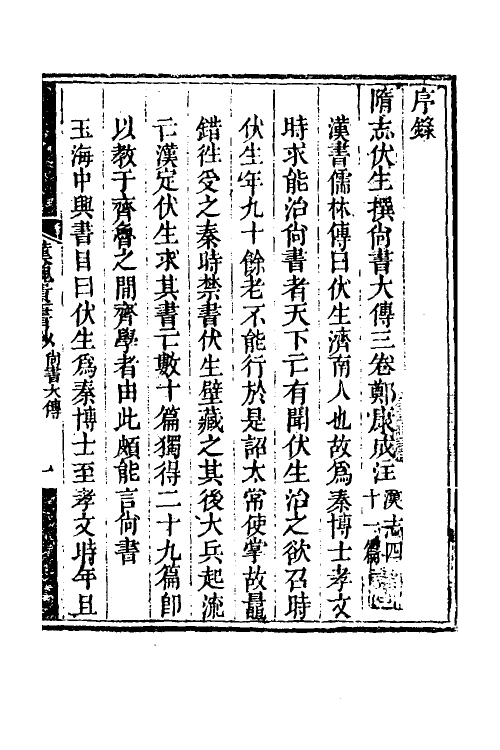 序錄
隋志伏生撰尚書大傳三卷鄭康成注漢志四十一篇
漢書儒林傳曰伏生濟南人也故爲秦博士孝文
時求能治尚書者天下亡有聞伏生治之欲召時
伏生年九十餘老不能行於是詔太常使掌故鼂
錯往受之秦時禁書伏生壁藏之其後大兵起流
亡漢定伏生求其書亡數十篇獨得二十九篇卽
以教于齊魯之間齊學者由此頗能言尚書
玉海中興書目曰伏生爲秦博士至孝文時年且
漢魏遺書鈔 尚書大傳 一